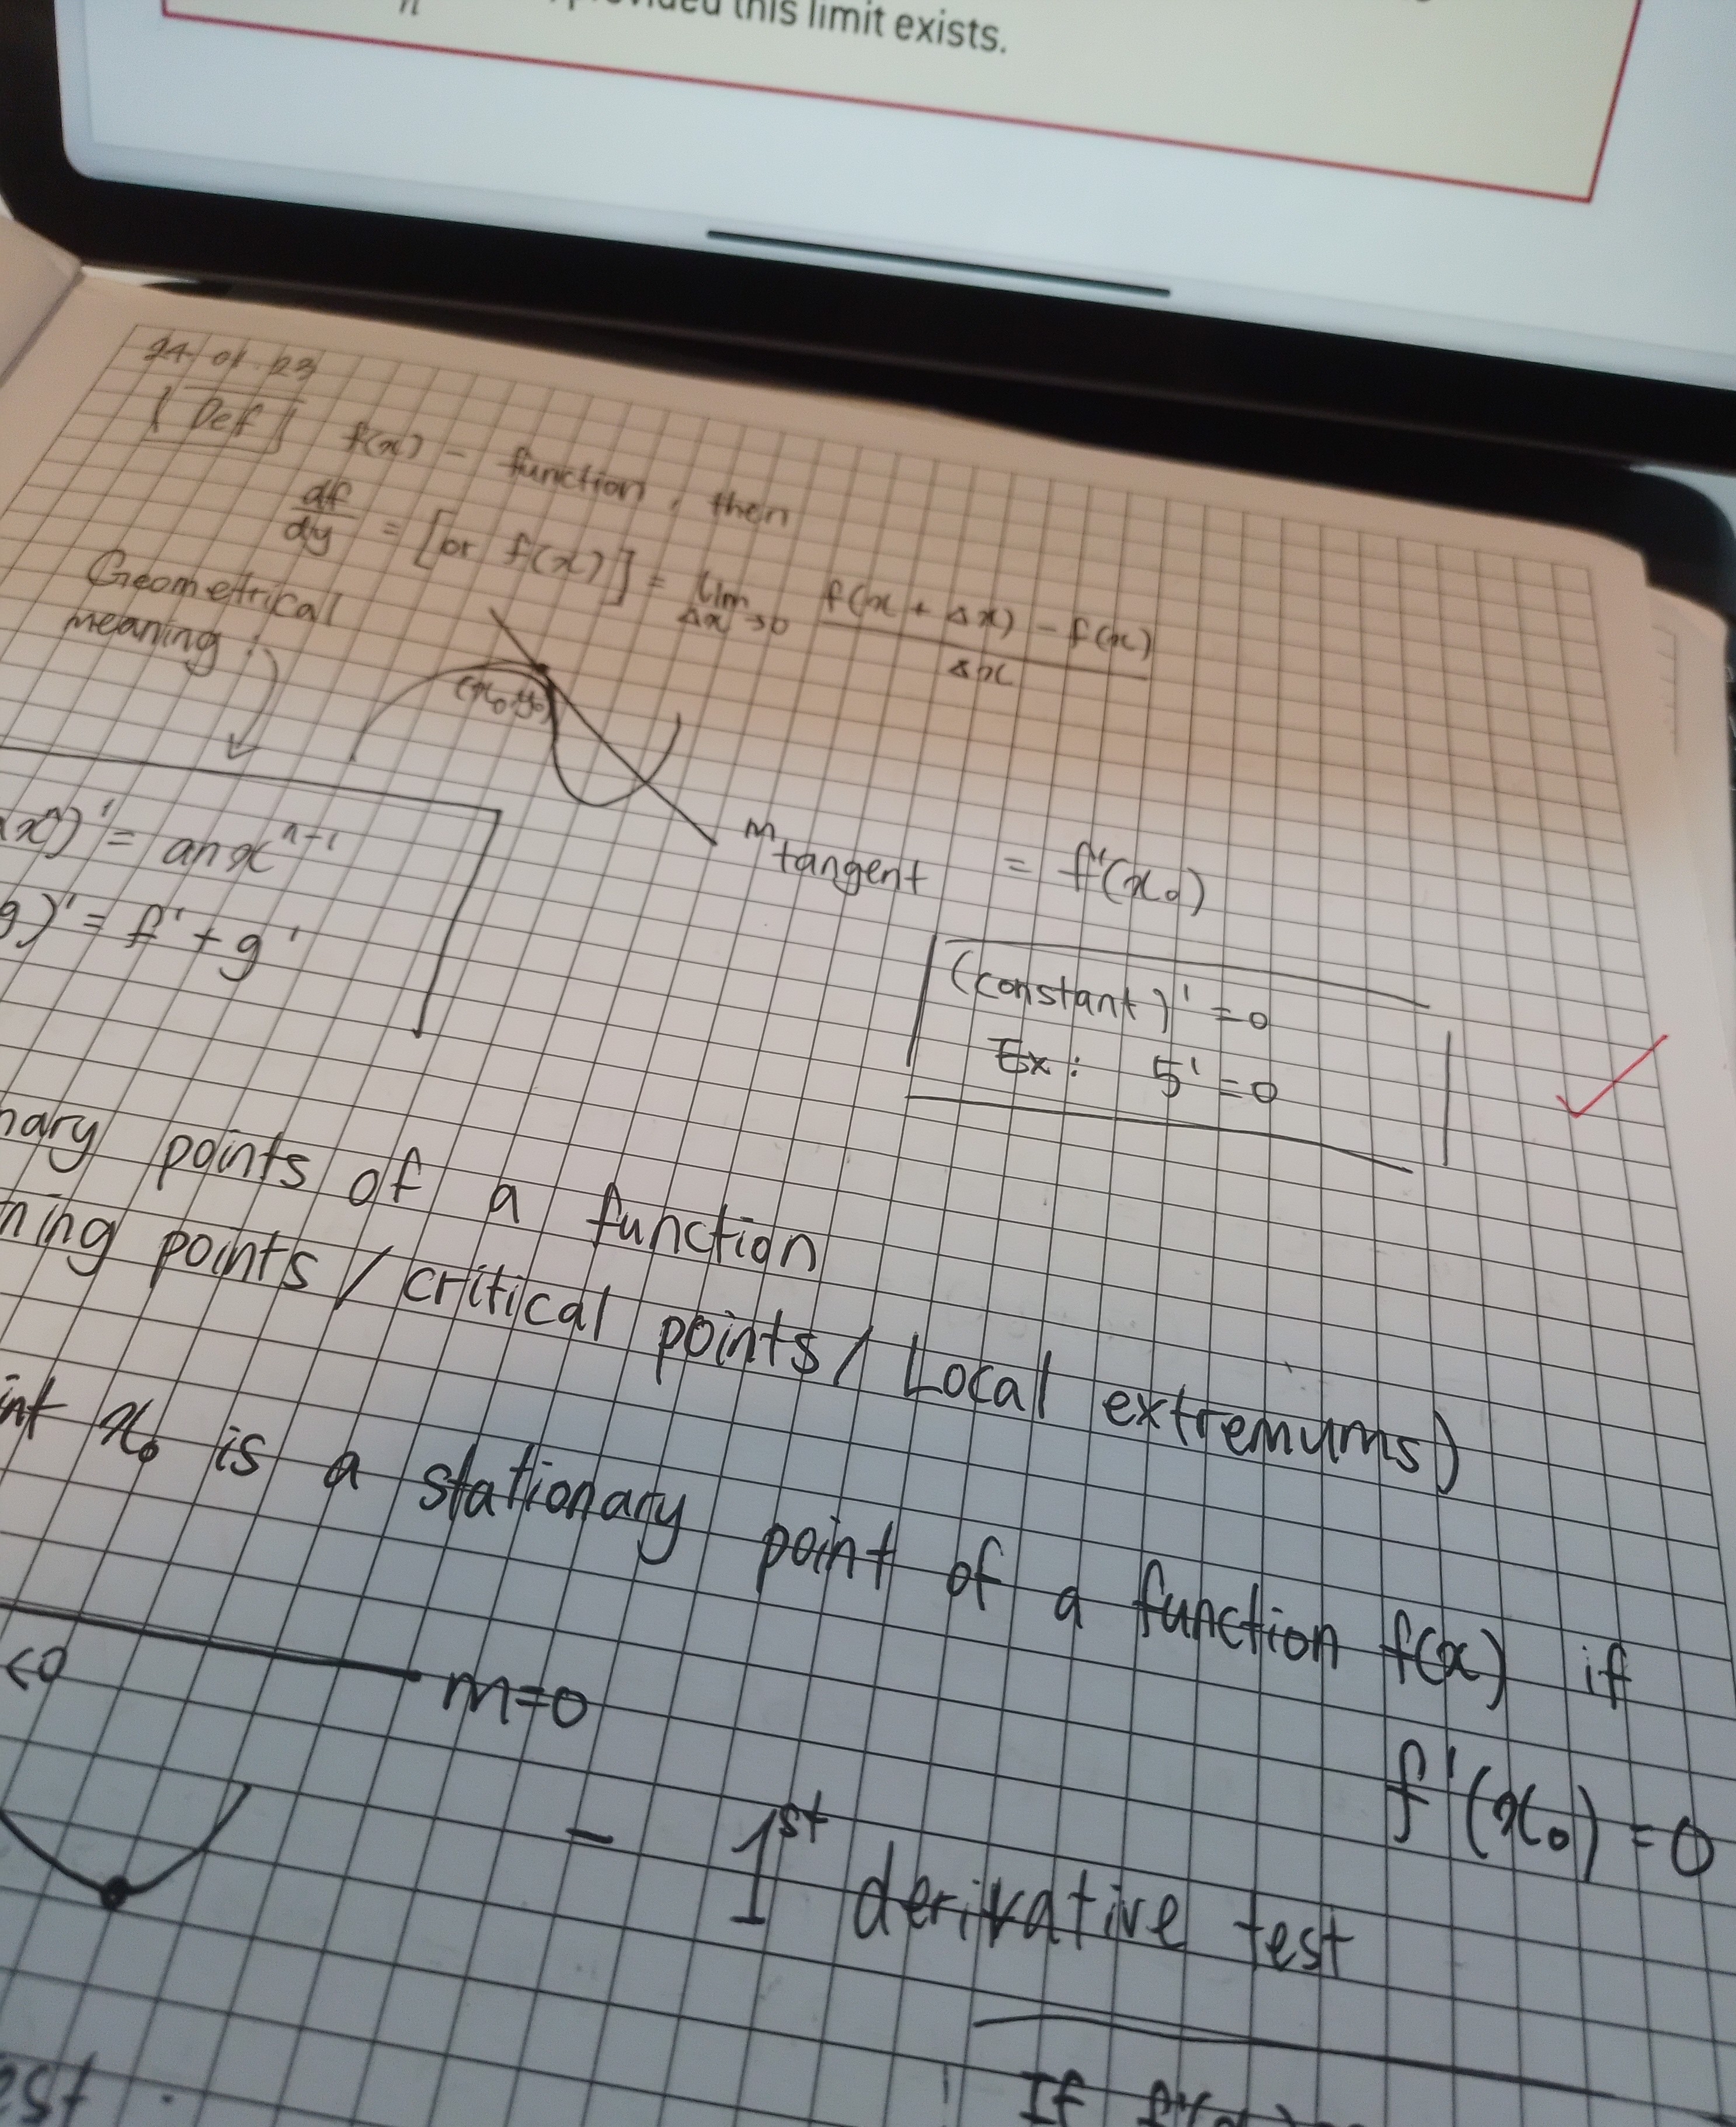 provided this limit exists.
24.01.23
[Def] f(x) - function, then
df/dy = [or f(x)] = lim Δx→0 f(x + Δx) - f(x) / Δx
Geometrical
meaning:
(x₀, y₀)
m tangent = f'(x₀)
x^n)' = anx^n-1
g)' = f' + g'
(constant)' = 0
Ex: 5' = 0
nary points of a function
ning points / critical points / Local extremums)
int x₀ is a stationary point of a function f(x) if
f'(x₀) = 0
<0
m=0
- 1st derivative test
est.
If